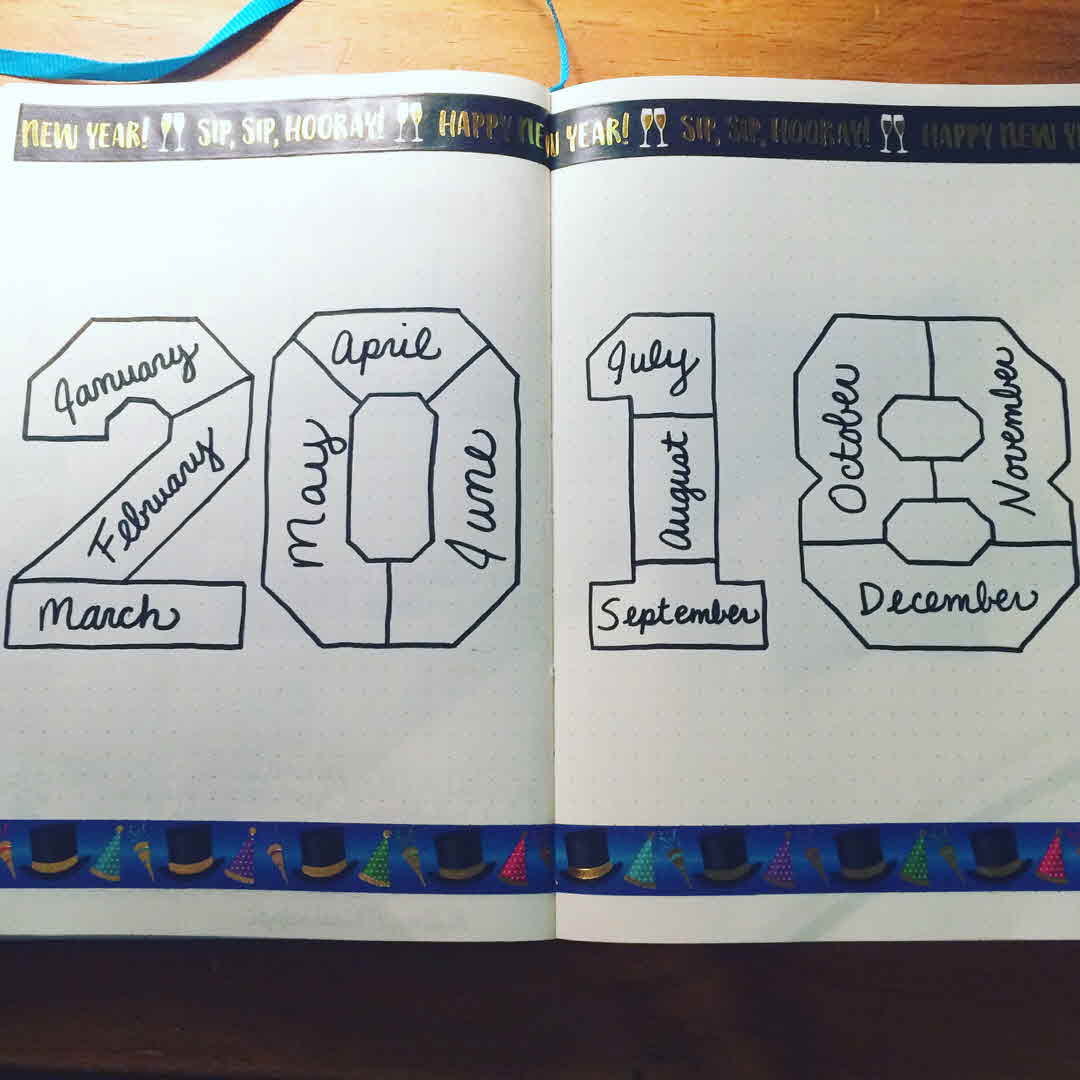 NEW YEAR! SIP, SIP, HOORAY! HAPPY NEW YEAR! SIP, SIP, HOORAY! HAPPY NEW
January
February
March
April
May
June
July
August
September
October
November
December